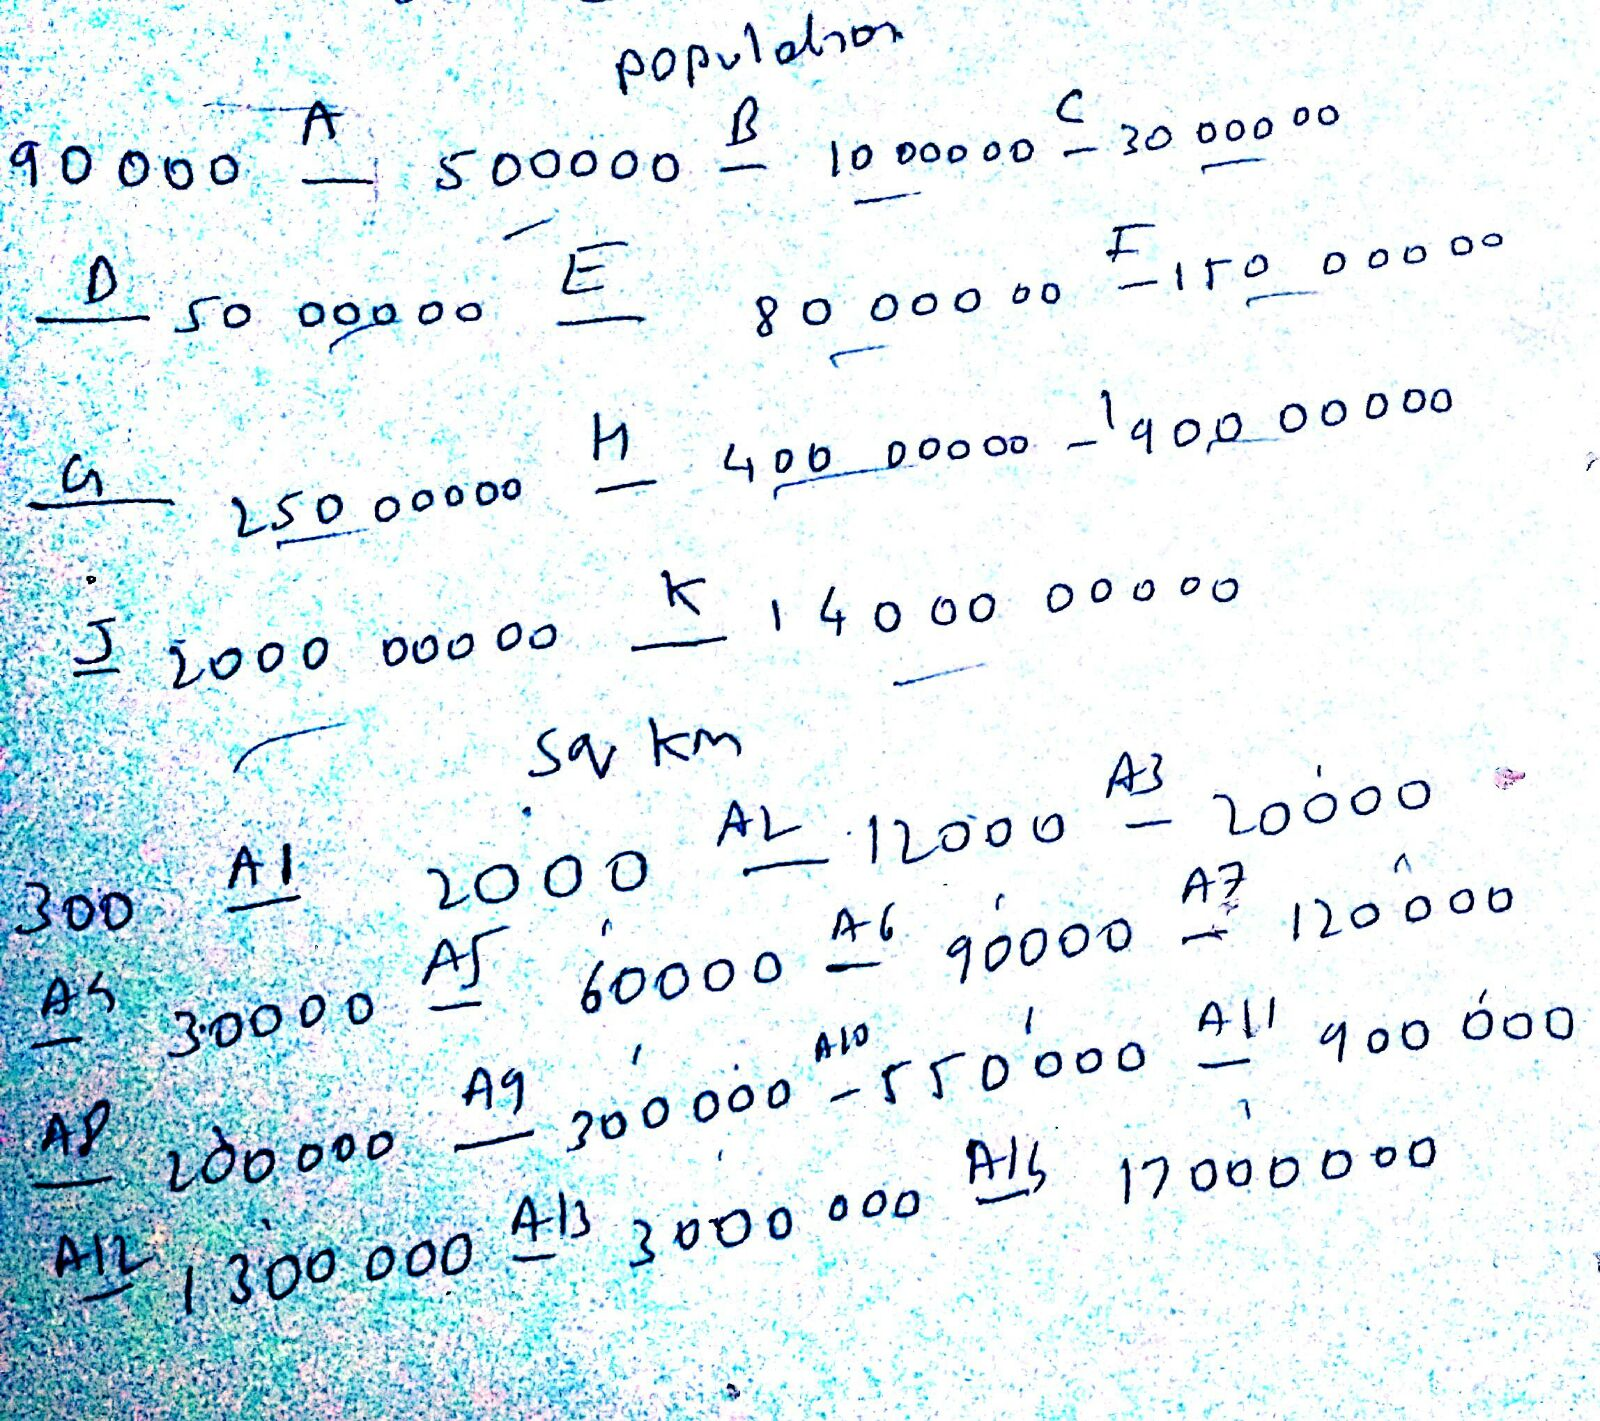 population
90000 A — 500000 B — 10 00000 C — 30 00000
D — 50 00000 E — 80 00000 F — 150 00000
G — 250 00000 H — 400 00000 I — 900 00000
J — 2000 00000 K — 14000 00000
Sq km
300 A1 — 2000 A2 — 12000 A3 — 20000
A4 — 30000 A5 — 60000 A6 — 90000 A7 — 120000
A8 — 200000 A9 — 300000 A10 — 550000 A11 — 900000
A12 — 1300000 A13 — 3000000 A14 — 17000000